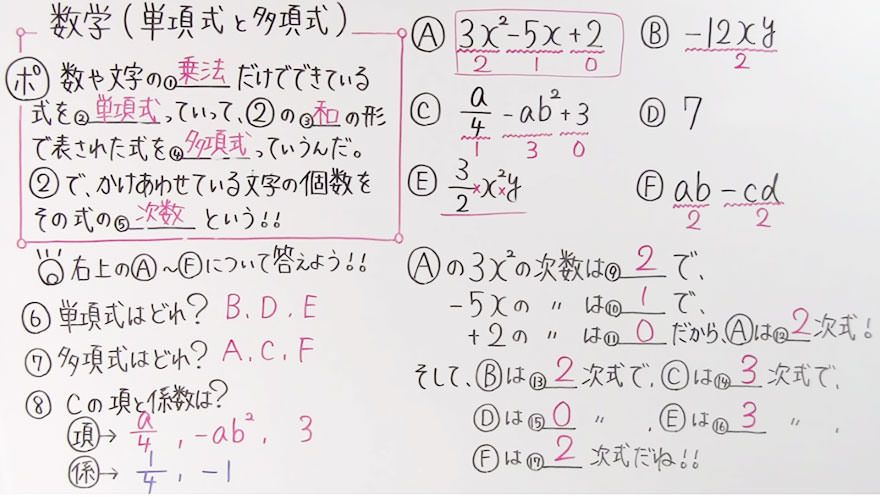 数学(単項式と多項式)
ポ 数や文字の①乗法だけでできている
式を②単項式っていって、②の③和の形
で表された式を④多項式っていうんだ。
②で、かけあわせている文字の個数を
その式の⑤次数という!!
右上のⒶ~Ⓕについて答えよう!!
⑥ 単項式はどれ? B、D、E
⑦ 多項式はどれ? A、C、F
⑧ Cの項と係数は?
項→ a/4 , -ab², 3
係→ 1/4 , -1
Ⓐ 3x²-5x+2
2 1 0
Ⓑ -12xy
2
Ⓒ a/4 -ab²+3
1 3 0
Ⓓ 7
Ⓔ 3/2×x²×y
Ⓕ ab-cd
2 2
Ⓐの3x²の次数は⑨2で、
-5xの 〃 は⑩1で、
+2の 〃 は⑪0だから、Ⓐは⑫2次式!
そして、Ⓑは⑬2次式で、Ⓒは⑭3次式で、
Ⓓは⑮0 〃 、Ⓔは⑯3 〃 、
Ⓕは⑰2次式だね!!